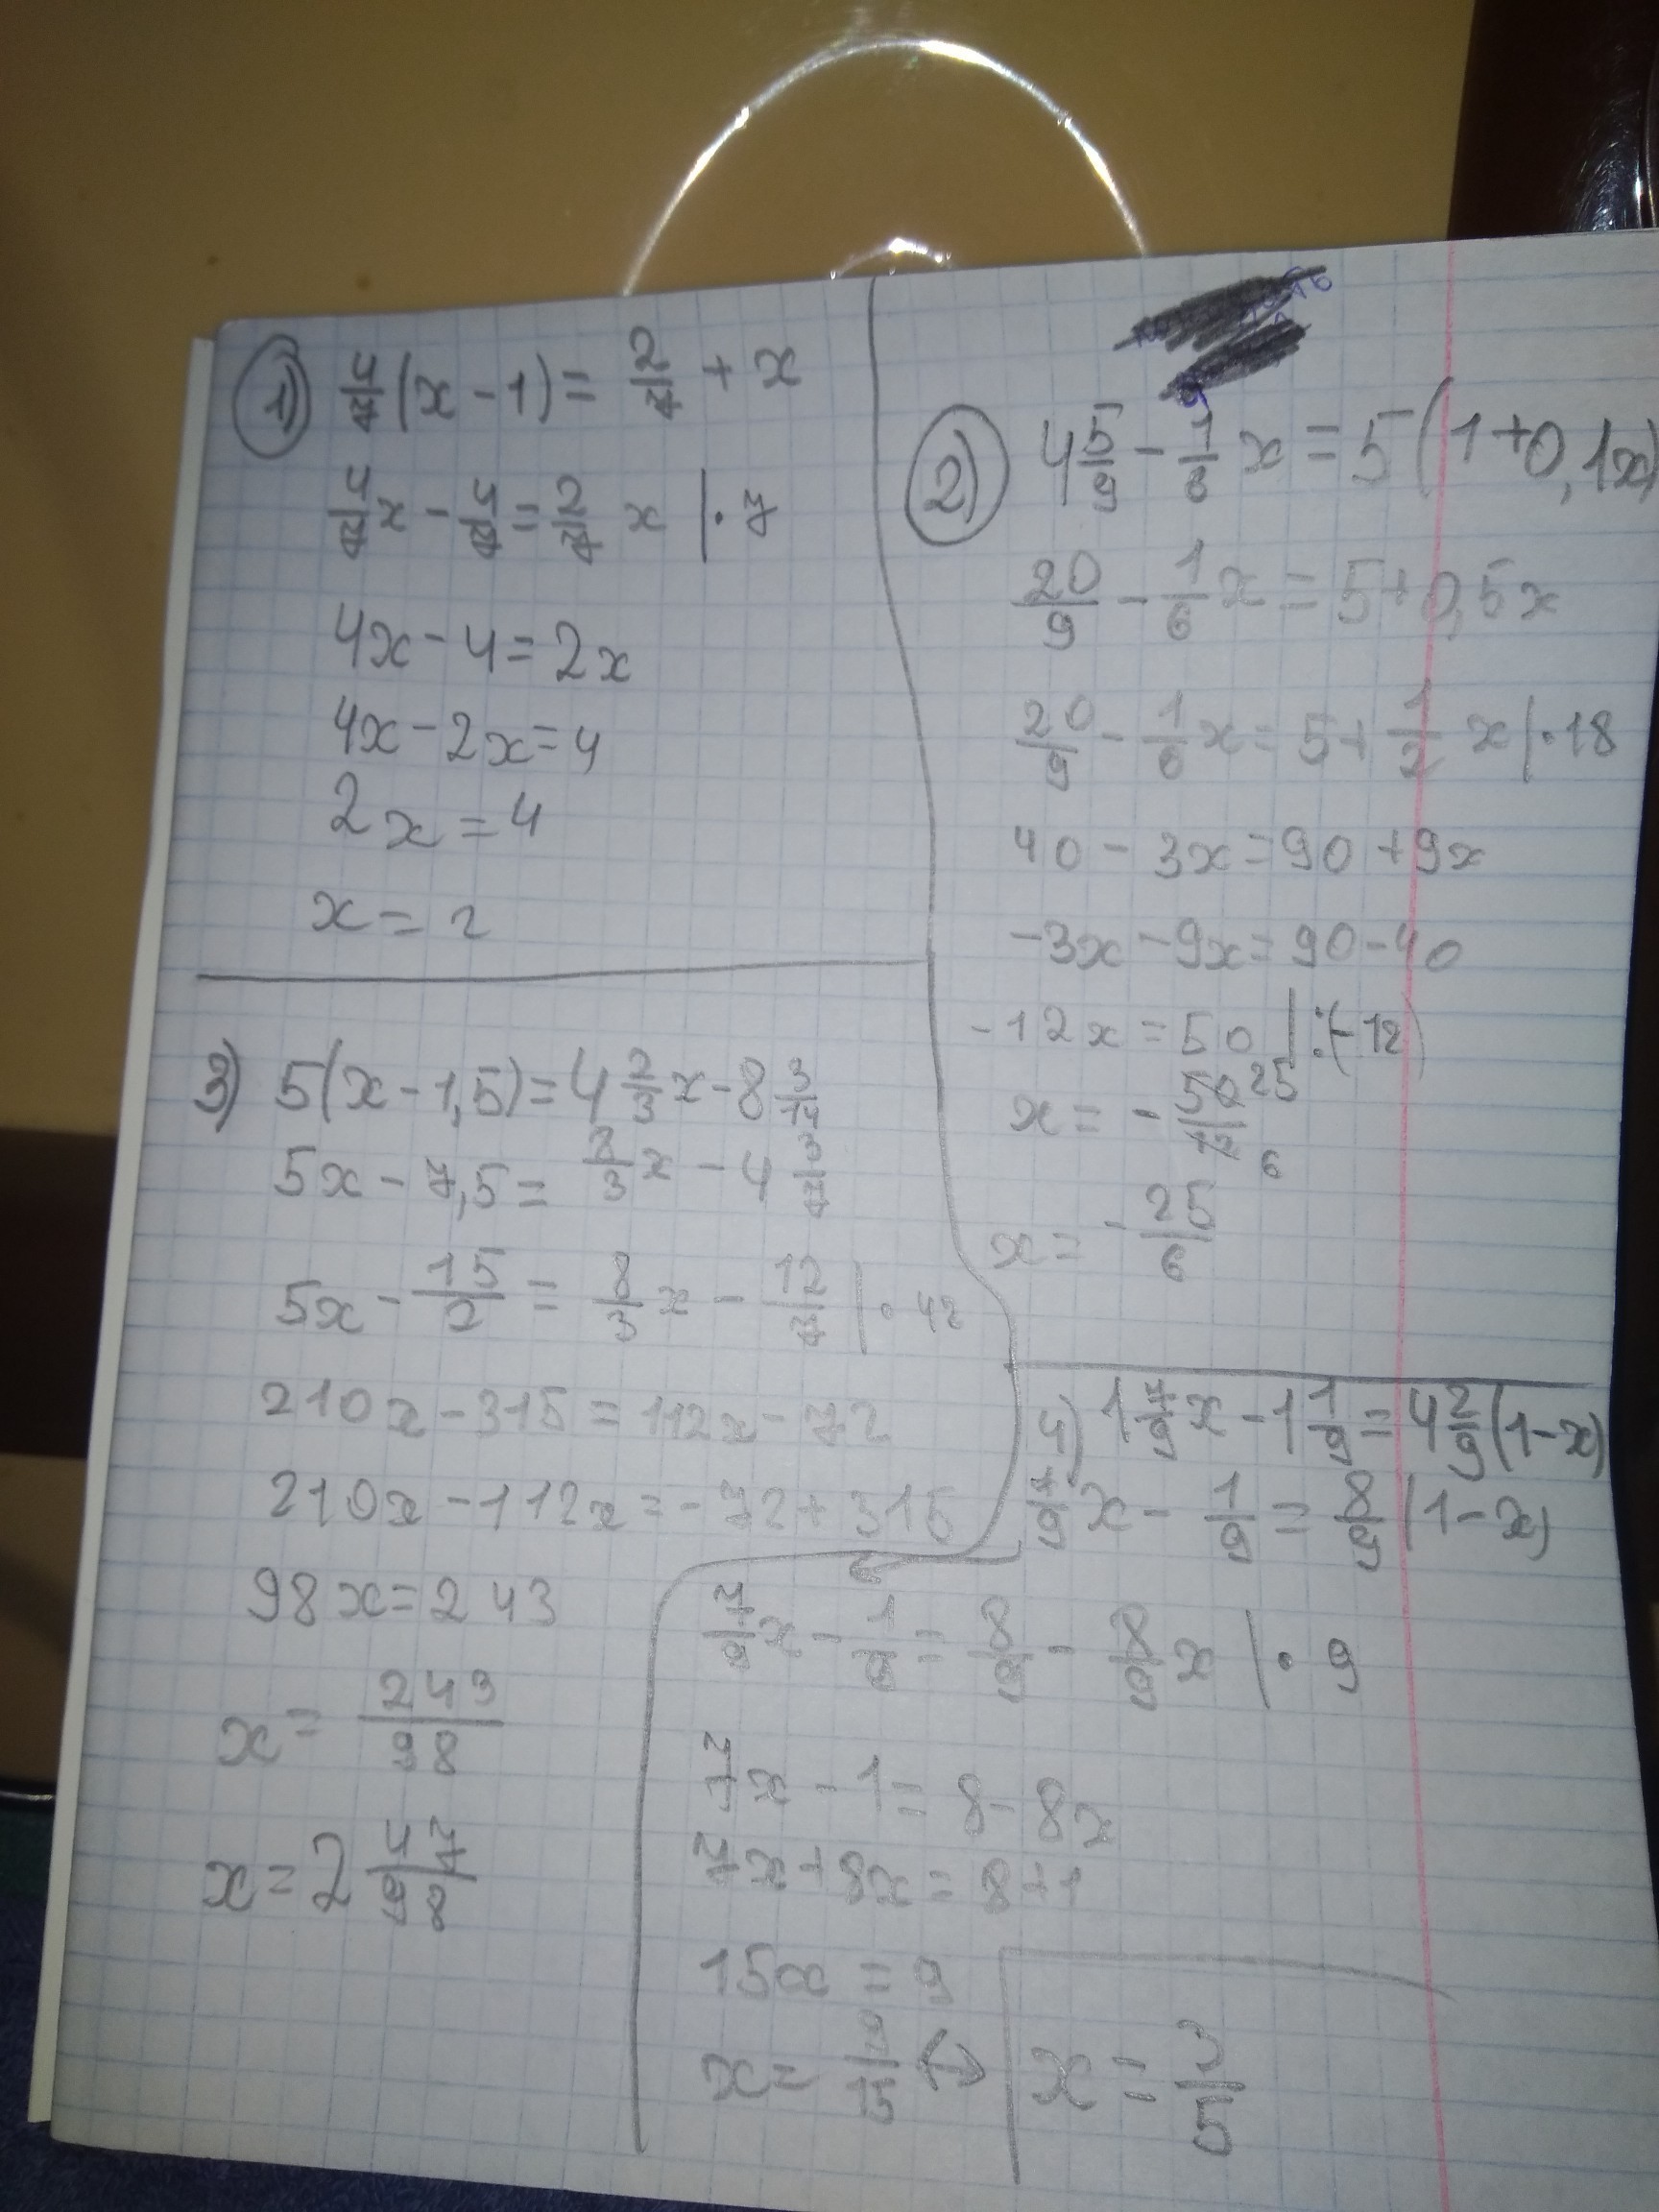 1) 4/7(x-1) = 2/7 + x
4/7x - 4/7 = 2/7 x |·7
4x - 4 = 2x
4x - 2x = 4
2x = 4
x = 2
2) 4 5/9 - 1/6 x = 5(1+0,1x)
20/9 - 1/6x = 5+0,5x
20/9 - 1/6x = 5+ 1/2 x |·18
40 - 3x = 90 + 9x
-3x - 9x = 90 - 40
-12x = 50 |:(-12)
x = - 50/12 25 6
x = - 25/6
3) 5(x-1,5) = 4 2/3x - 8 3/14
5x - 7,5 = 8/3x - 4 3/7
5x - 15/2 = 8/3x - 12/7 |·42
210x - 315 = 112x - 72
210x - 112x = -72+315
98x = 243
x = 243/98
x = 2 47/98
4) 1 7/9x - 1 1/9 = 4 2/9(1-x)
7/9x - 1/9 = 8/9(1-x)
7/9x - 1/9 = 8/9 - 8/9x |·9
7x - 1 = 8 - 8x
7x + 8x = 8+1
15x = 9
x = 9/15
x = 3/5